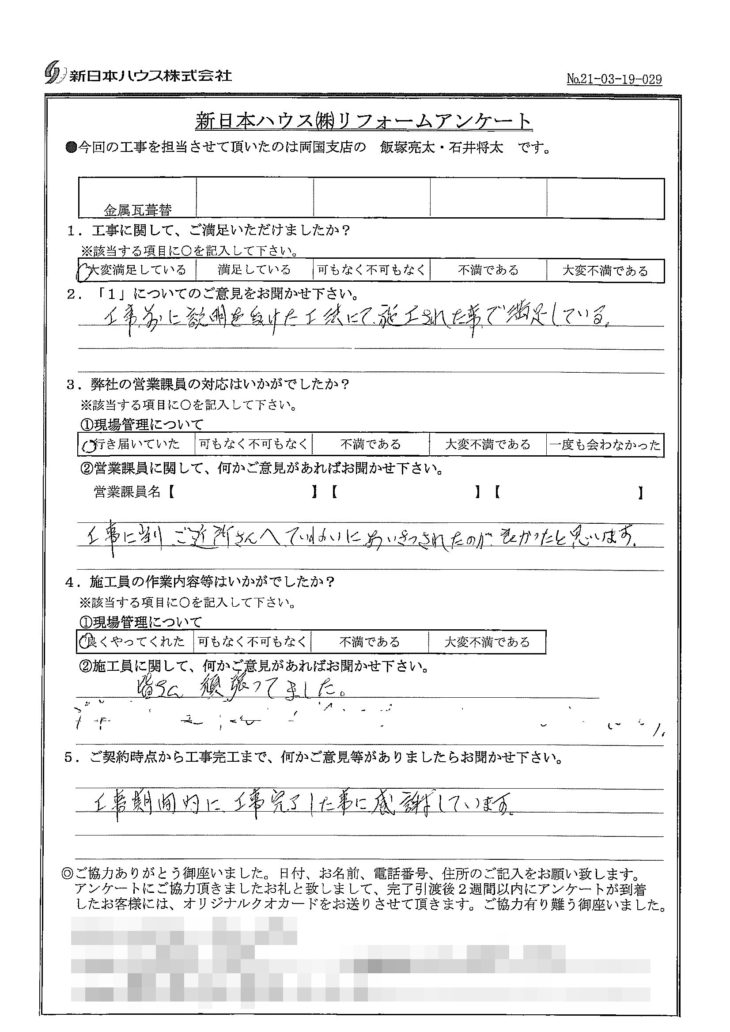 新日本ハウス株式会社
No.21-03-19-029
新日本ハウス㈱リフォームアンケート
●今回の工事を担当させて頂いたのは両国支店の 飯塚亮太・石井将太 です。
金属瓦葺替
1．工事に関して、ご満足いただけましたか？
※該当する項目に〇を記入して下さい。
大変満足している 満足している 可もなく不可もなく 不満である 大変不満である
2．「1」についてのご意見をお聞かせ下さい。
工事前に説明を受けた工法にて、施工された事で満足している。
3．弊社の営業課員の対応はいかがでしたか？
※該当する項目に〇を記入して下さい。
①現場管理について
行き届いていた 可もなく不可もなく 不満である 大変不満である 一度も会わなかった
②営業課員に関して、何かご意見があればお聞かせ下さい。
営業課員名【 】【 】【 】
工事に ご近所さんへていねいにあいさつされたのが良かったと思います。
4．施工員の作業内容等はいかがでしたか？
※該当する項目に〇を記入して下さい。
①現場管理について
良くやってくれた 可もなく不可もなく 不満である 大変不満である
②施工員に関して、何かご意見があればお聞かせ下さい。
皆さん 頑張ってました。
5．ご契約時点から工事完工まで、何かご意見等がありましたらお聞かせ下さい。
工事期間内に、工事完了した事に感謝しています。
◎ご協力ありがとう御座いました。日付、お名前、電話番号、住所のご記入をお願い致します。
アンケートにご協力頂きましたお礼と致しまして、完了引渡後２週間以内にアンケートが到着
したお客様には、オリジナルクオカードをお送りさせて頂きます。ご協力有り難う御座いました。